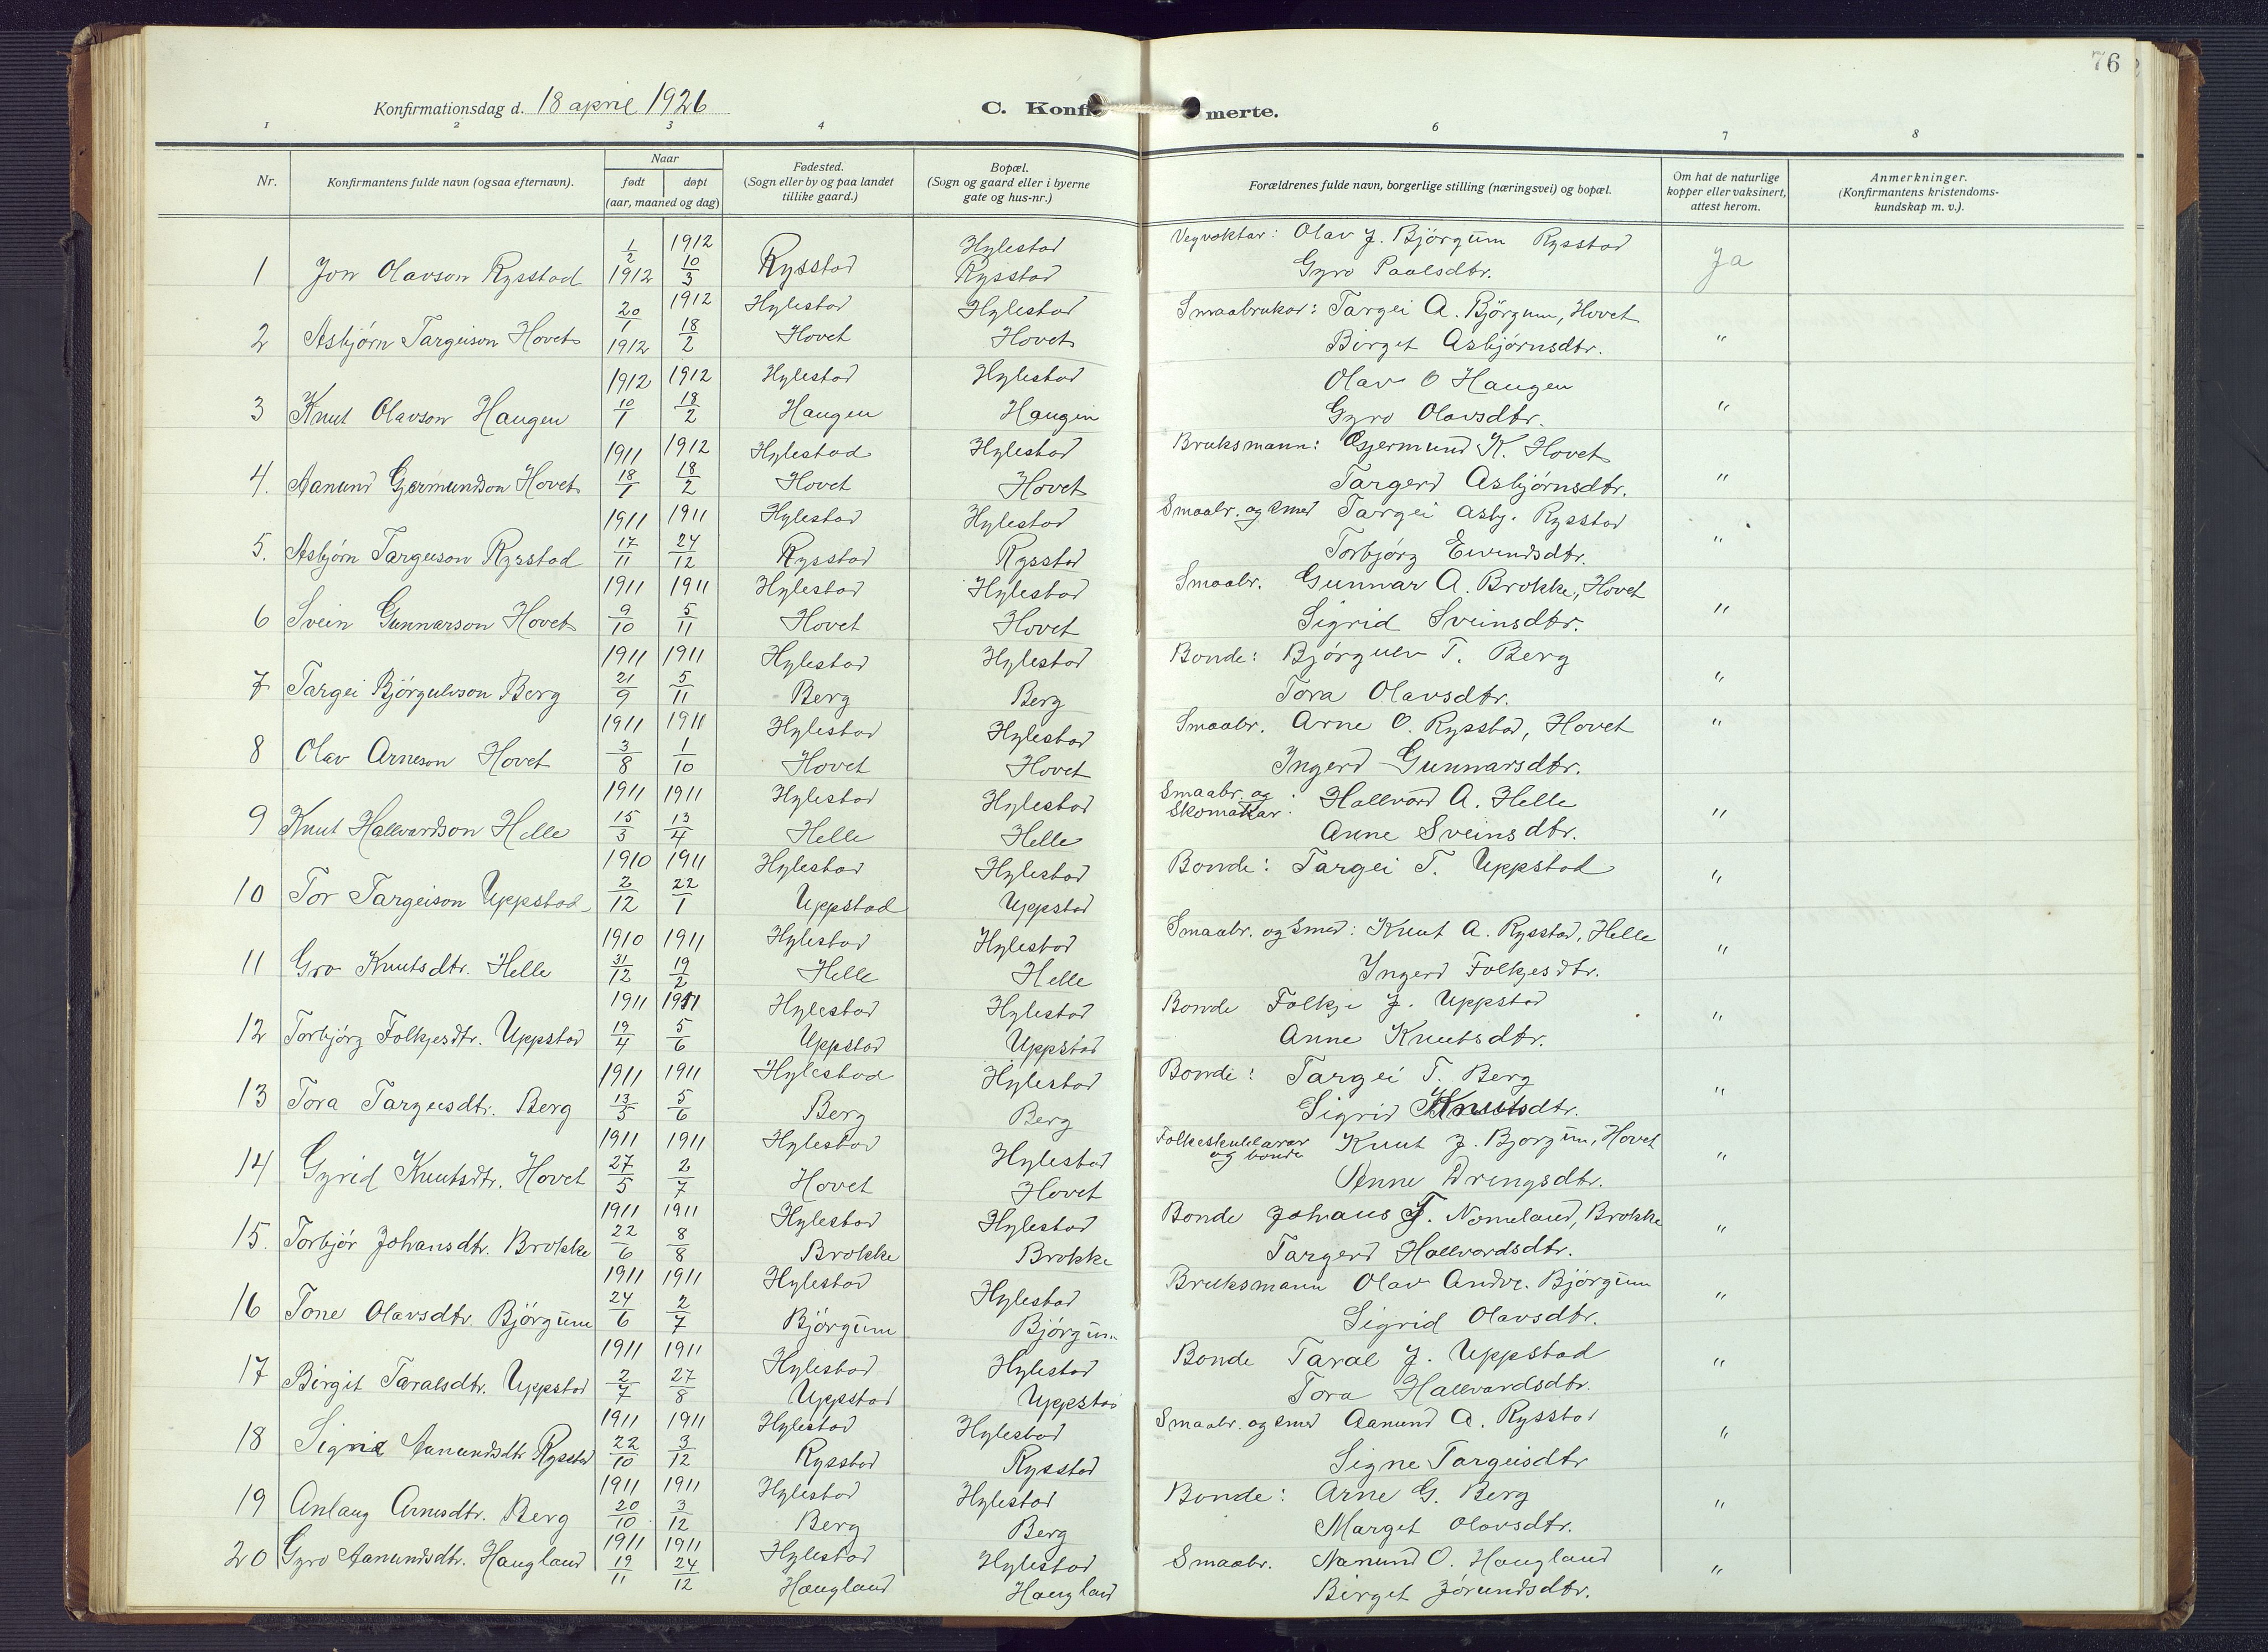 76
Konfirmationsdag d. 18 april 1926
C. Konfi merte.
1 2 3 4 6 7 8
Nr.
Konfirmantens fulde navn (ogsaa efternavn).
Naar
født døpt
(aar, maaned og dag)
Fødested.
(Sogn eller by og paa landet
tillike gaard.)
Bopæl.
(Sogn og gaard eller i byerne
gate og hus-nr.)
Forældrenes fulde navn, borgerlige stilling (næringsvei) og bopæl.
Om hat de naturlige
kopper eller vaksinert,
attest herom.
Anmerkninger.
(Konfirmantens kristendoms-
kundskap m. v.).
1/2 1912 Hylestad Vegvoktar: Olav J. Bjørgum Rysstad
1 Jon Olavson Rysstad 1912 10/3 Rysstad Rysstad Gyro Paalsdtr. Ja
20/1 1912 Hylestad Hylestad Smaabrukar: Targei A. Bjørgum, Hovet
2 Asbjørn Targeison Hovet 1912 18/2 Hovet Hovet Birget Asbjørnsdtr. "
1912 1912 Hylestad Hylestad Olav O Haugen
3 Knut Olavson Haugen 10/1 18/2 Haugen Haugen Gyro Olavsdtr. "
1911 1912 Hylestad Hylestad Bruksmann: Gjermund K. Hovet
4. Aanund Gjermundson Hovet 18/1 18/2 Hovet Hovet Targerd Asbjørnsdtr. "
1911 1911 Hylestad Hylestad Smaabr. og smed Targei Asbj. Rysstad
5. Asbjørn Targeison Rysstad 17/11 24/12 Rysstad Rysstad Torbjørg Eivindsdtr. "
1911 1911 Hylestad Hylestad Smaabr. Gunnar A. Brokke, Hovet
6 Svein Gunnarson Hovet 9/10 5/11 Hovet Hovet Sigrid Sveinsdtr. "
1911 1911 Hylestad Hylestad Bonde: Bjørgulv T. Berg
7 Targei Bjørgulvson Berg 21/9 5/11 Berg Berg Tora Olavsdtr. "
1911 1911 Hylestad Hylestad Smaabr. Arne O. Rysstad, Hovet "
8 Olav Arneson Hovet 3/8 1/10 Hovet Hovet Ingerd Gunnarsdtr.
1911 1911 Hylestad Hylestad Smaabr. og skomakar: Hallvard A. Helle
9 Knut Hallvardson Helle 15/3 13/4 Helle Helle Anne Sveinsdtr. "
1910 1911 Hylestad Hylestad Bonde: Targei T. Uppstad
10 Tor Targeison Uppstad 2/12 22/1 Uppstad Uppstad "
1910 1911 Hylestad Hylestad Smaabr. og smed: Knut A. Rysstad, Helle
11 Gro Knutsdtr. Helle 31/12 19/2 Helle Helle Yngerd Folkjesdtr. "
1911 1911 Hylestad Hylestad Bonde Folkje J. Uppstad
12 Torbjørg Folkjesdtr. Uppstad 19/4 5/6 Uppstad Uppstad Anne Knutsdtr. "
1911 1911 Hylestad Hylestad Bonde: Targei T. Berg
13 Tora Targeisdtr. Berg 13/5 5/6 Berg Berg Sigrid Knutsdtr. "
1911 1911 Hylestad Hylestad Folkeskulelærar og bonde Knut J. Bjørgum, Hovet
14 Gyrid Knutsdtr. Hovet 27/5 2/7 Hovet Hovet Anne Drengsdtr. "
1911 1911 Hylestad Hylestad Bonde Johans T. Nomeland, Brokke
15. Torbjør Johansdtr. Brokke 22/6 8/8 Brokke Brokke Targerd Hallvardsdtr. "
1911 1911 Hylestad Hylestad Bruksmann Olav Andr. Bjørgum
16 Tone Olavsdtr. Bjørgum 24/6 2/7 Bjørgum Bjørgum Sigrid Olavsdtr. "
1911 1911 Hylestad Hylestad Bonde Taral J. Uppstad
17 Birgit Taralsdtr. Uppstad 2/7 27/8 Uppstad Uppstad Tora Hallvardsdtr. "
1911 1911 Hylestad Hylestad Smaabr. og smed Aanund A. Rysstad
18 Sigrid Aanundsdtr Rysstad 22/10 3/12 Rysstad Rysstad Signe Targeisdtr "
1911 1911 Hylestad Hylestad Bonde: Arne G. Berg
19 Anlaug Arnesdtr. Berg 20/10 3/12 Berg Berg Marget Olavsdtr. "
1911 1911 Hylestad Hylestad Smaabr. Aanund O. Haugland
20 Gyro Aanundsdtr. Haugland 19/11 24/12 Haugland Haugland Birget Jørundsdtr. "